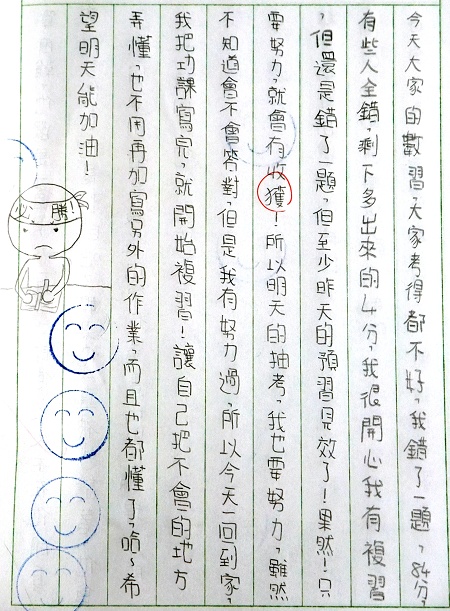 今天大家的數習,大家考得都不好,我錯了一題,84分,
有些人全錯,剩下多出來的4分,我很開心我有複習
,但還是錯了一題,但至少昨天的預習見效了!果然!只
要努力,就會有收獲!所以明天的抽考,我也要努力,雖然
不知道會不會答對,但是我有努力過,所以今天一回到家,
我把功課寫完,就開始複習!讓自己把不會的地方
弄懂,也不用再加寫另外的作業,而且也都懂了,哈~希
望明天能加油!
必勝!